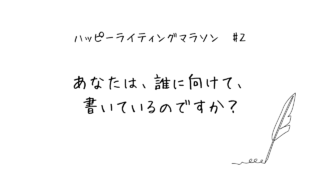 ハッピーライティングマラソン　#2
あなたは、誰に向けて、
書いているのですか？